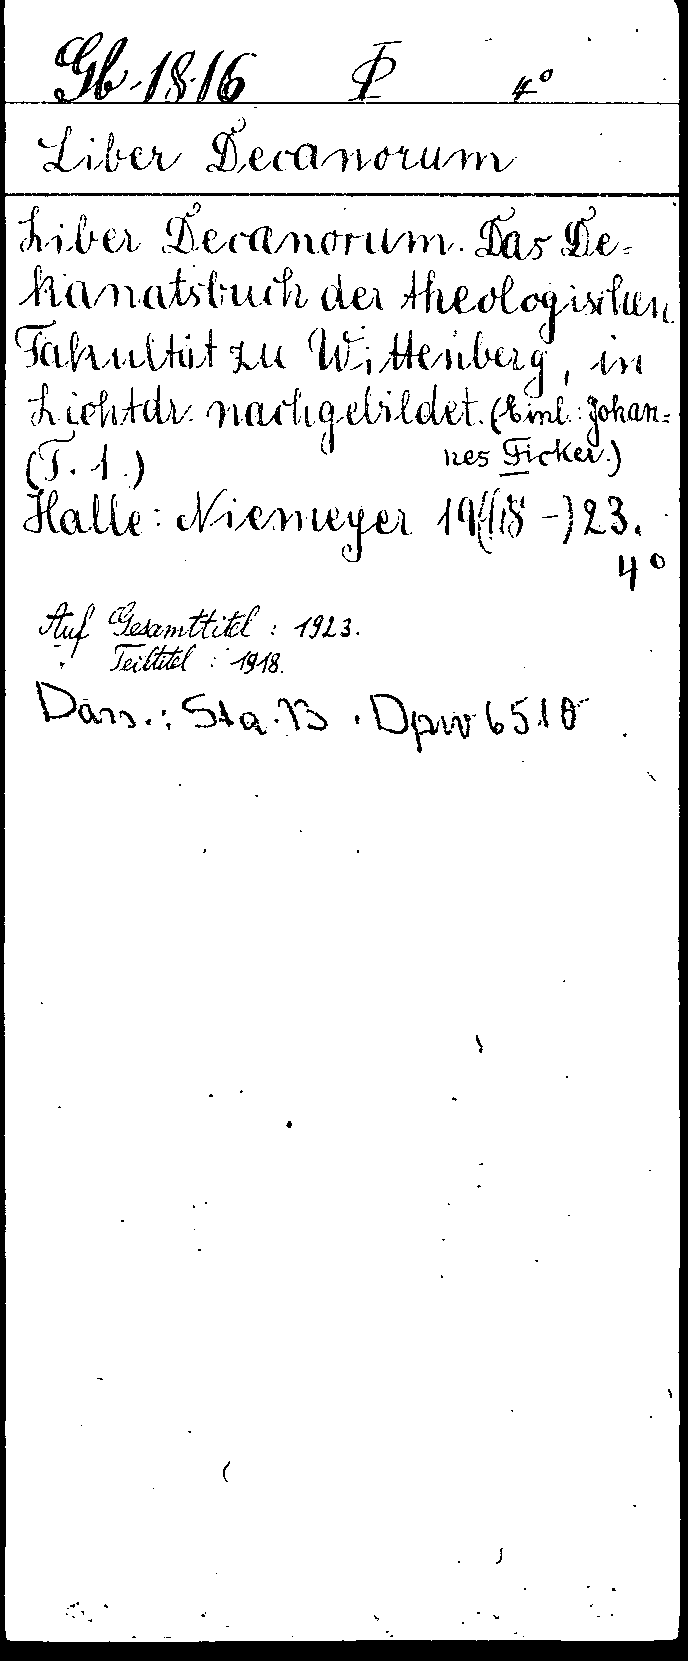 Gb 1816 Φ 4°
Liber Decanorum
Liber Decanorum. Das De=
kanatsbuch der theologischen
Fakultät zu Wittenberg, in
Lichtdr. nachgebildet. (Einl.: Johan=
(T. 1.) nes Ficker.)
Halle: Niemeyer 19((18 -) 23.
4°
Auf Gesamttitel: 1923.
" Teiltitel: 1918.
Dass.: Sta. B. Dpw 6510